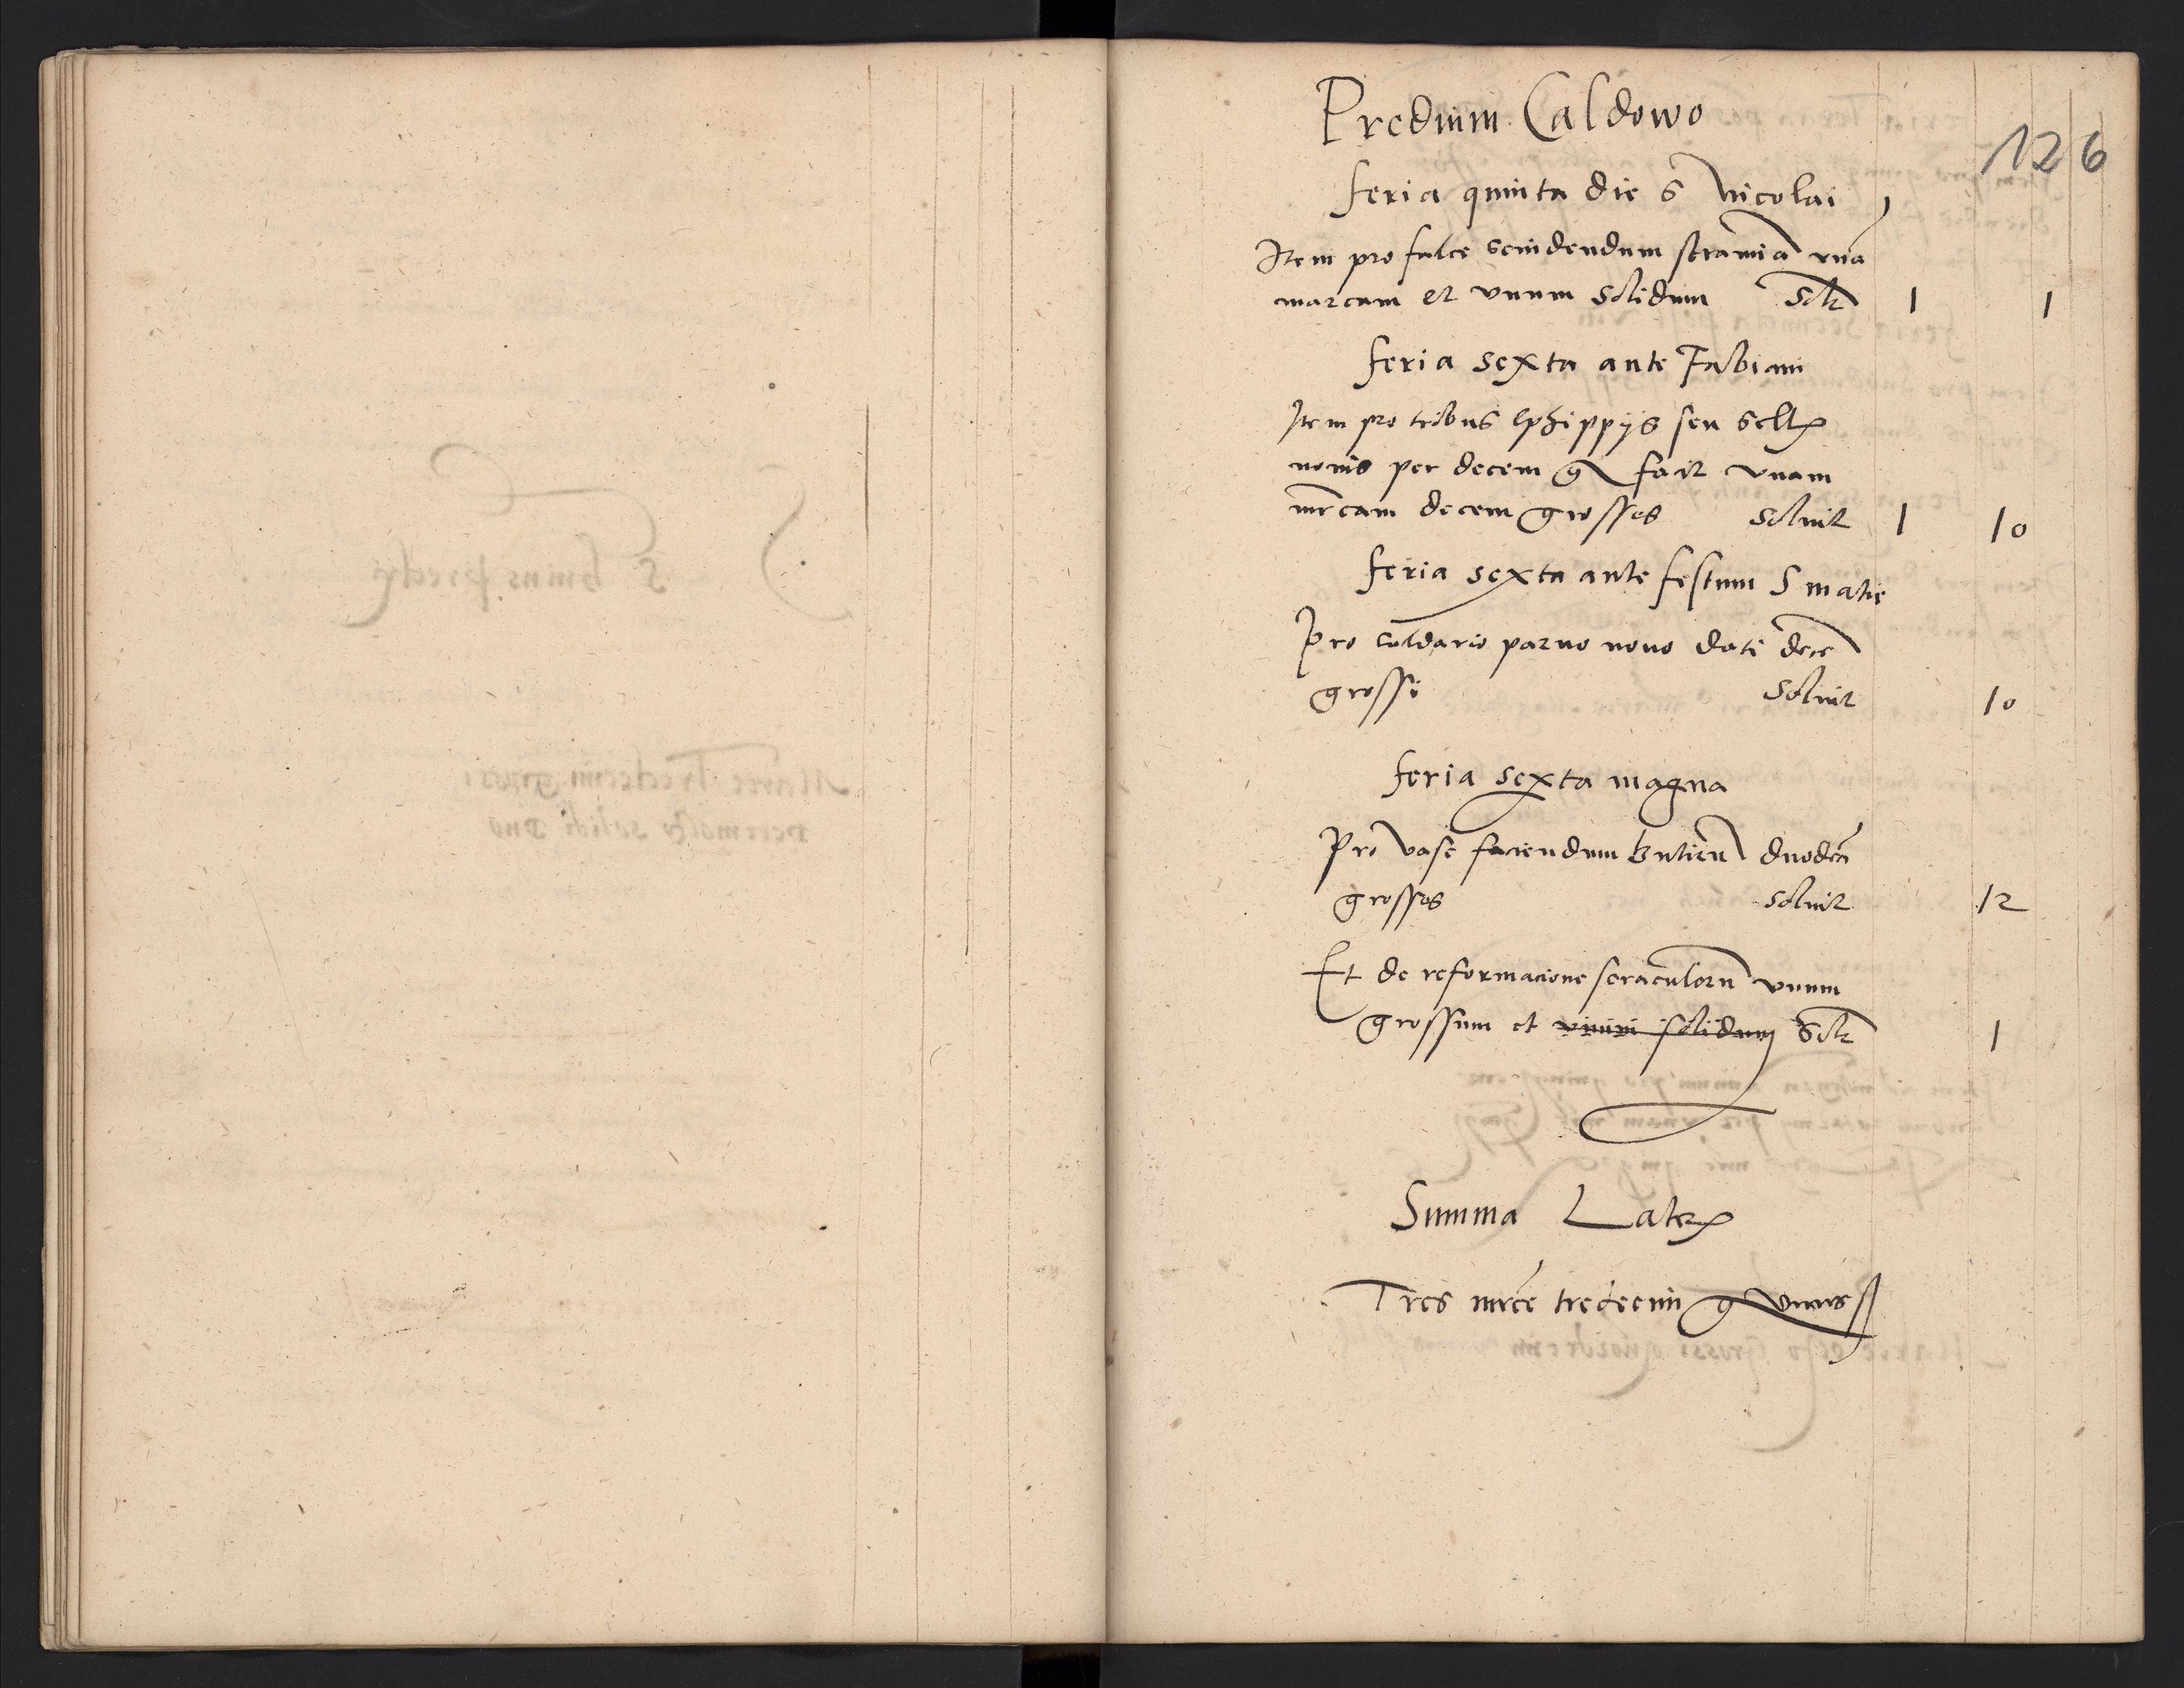 Predium Caldowo
126
feria quinta die S Nicolai
Item pro falce scindendum stramia una
marcam et unum solidum Solt 1 1
feria sexta ante Fabiani
Item pro tribus ephippijs seu sell
novis per decem g facit unam
mrcam decem grosses solvit 1 10
feria sexta ante festum S matie
Pro caldario parvo novo dati dece
grossi Solvit 10
feria sexta magna
Pro vase faciendum butiru duodeci
grosses solvit 12
Et de reformacione seraculoru unum
grossum et unum solidum Solt 1
Summa Later
Tres mrce tredecim g unus ß